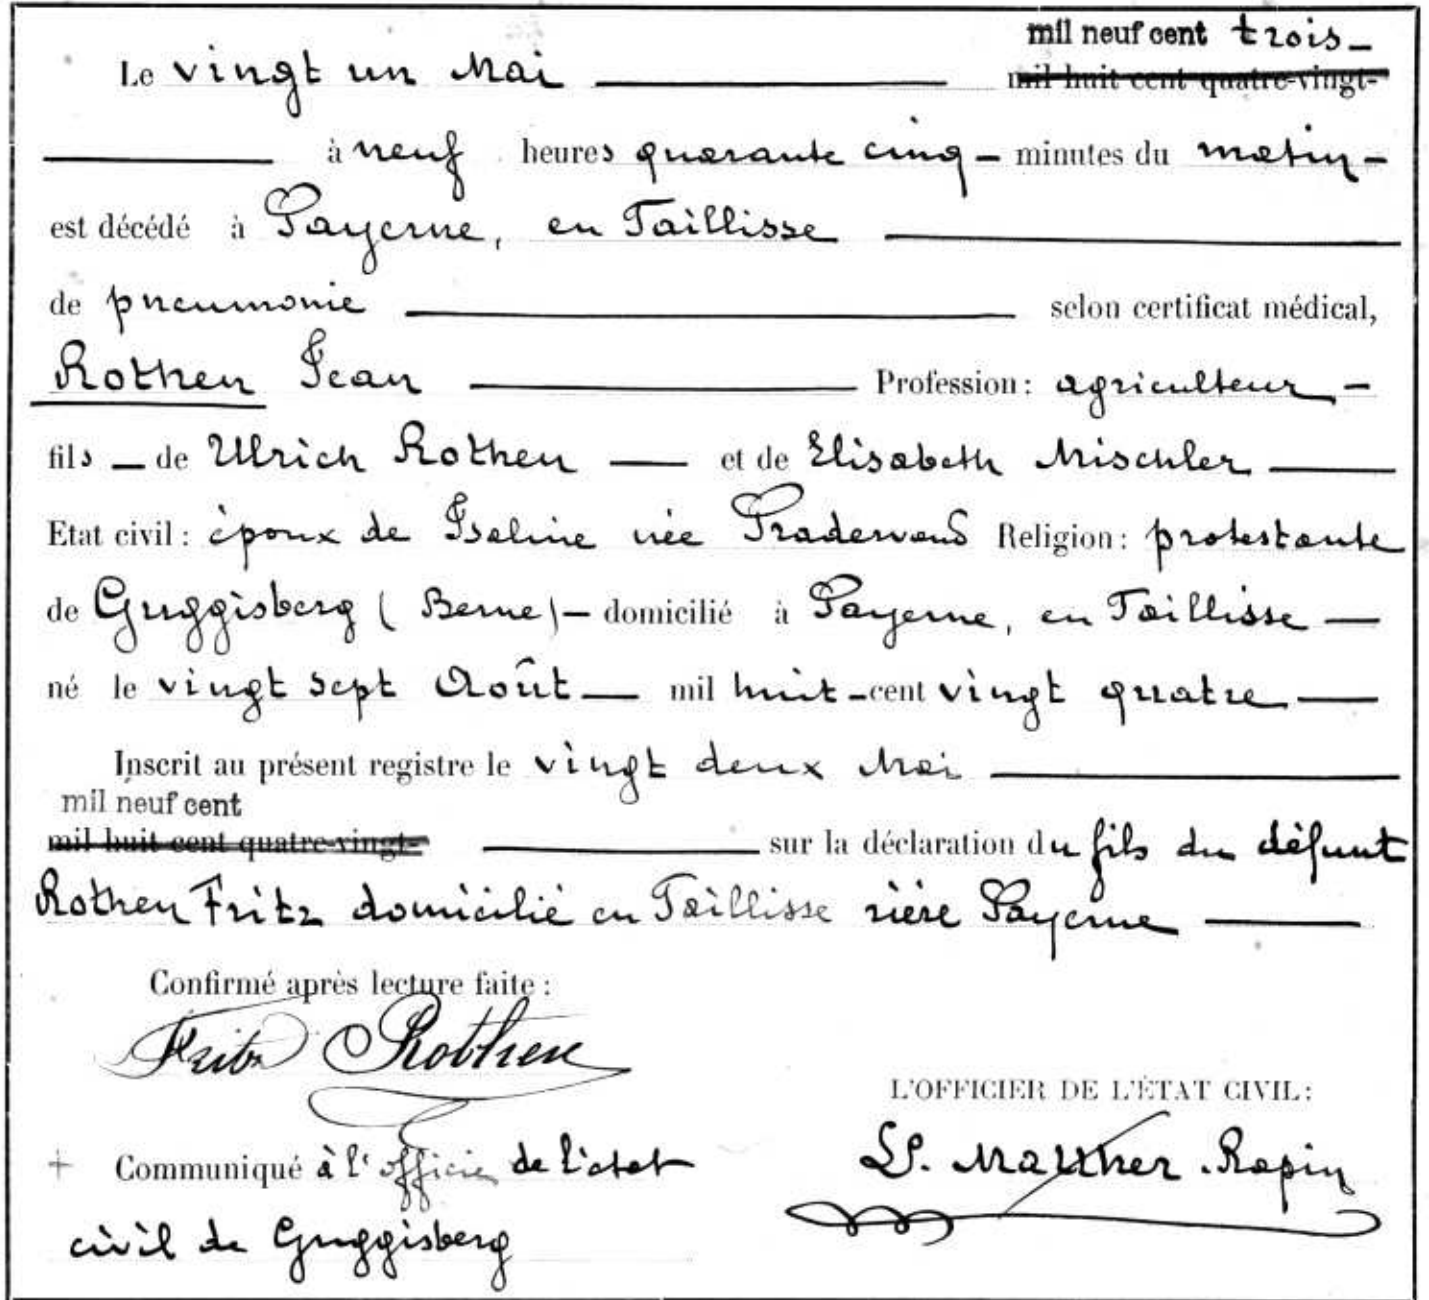 mil neuf cent trois
Le vingt un Mai mil huit cent quatre-vingt-
à neuf heures quarante cinq minutes du matin
est décédé à Payerne, en Taillisse
de pneumonie selon certificat médical,
Rothen Jean Profession: agriculteur
fils de Ulrich Rothen et de Elisabeth Mischler
Etat civil: époux de Iseline née Pradervand Religion: protestante
de Guggisberg (Berne) domicilié à Payerne, en Taillisse
né le vingt sept Août mil huit-cent vingt quatre
Inscrit au présent registre le vingt deux Mai
mil neuf cent
mil huit cent quatre-vingt- sur la déclaration du fils du défunt
Rothen Fritz domicilié en Taillisse rière Payerne
Confirmé après lecture faite:
Fritz Rothen
L'OFFICIER DE L'ÉTAT CIVIL:
+ Communiqué à l'officier de l'état
Rapin
civil de Guggisberg